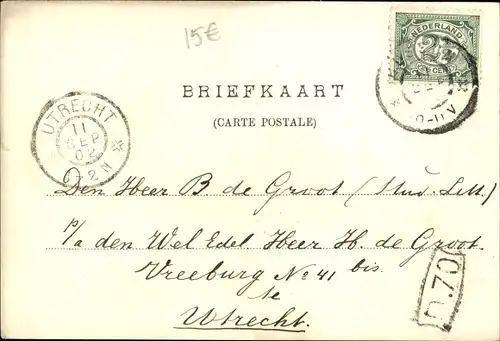 15€
NEDERLAND
2½
CENT
BRIEFKAART
(CARTE POSTALE)
UTRECHT
11
SEP
02
2N
Den Heer B de Groot (Stud. Litt)
p/a den Wel Edel Heer H. de Groot.
Vreeburg No 41 bis.
te
Utrecht.
D.70